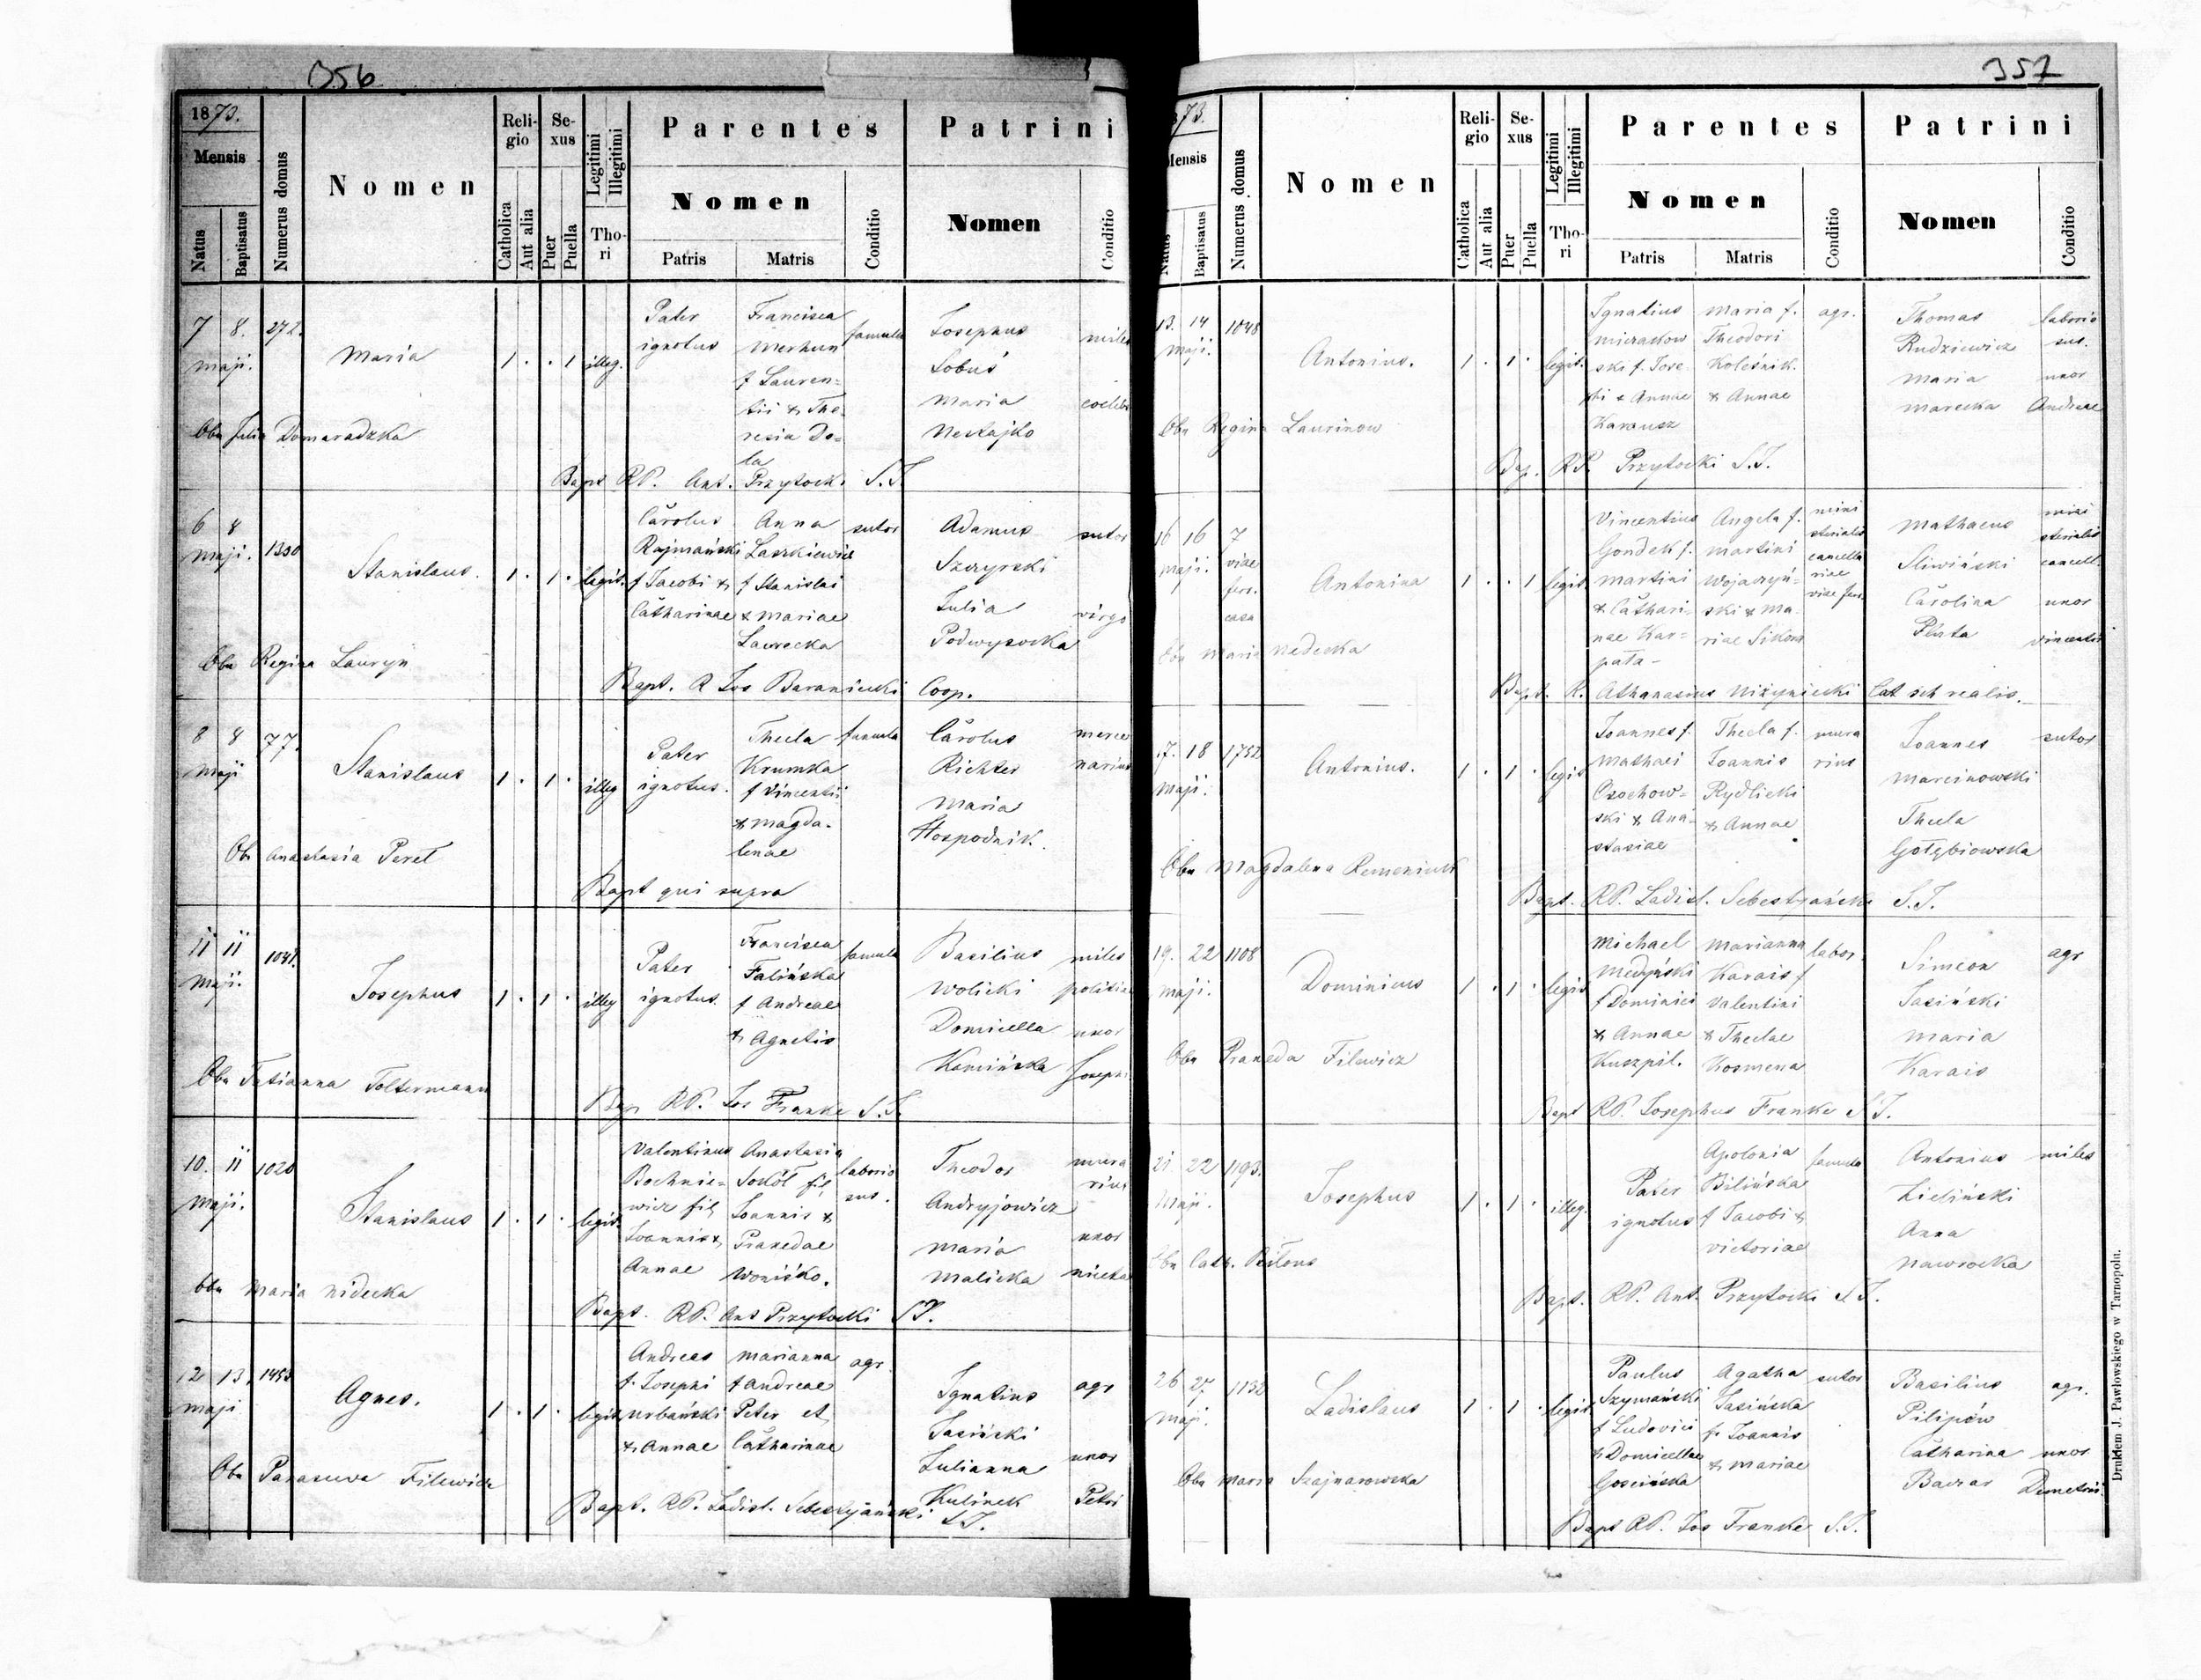 356
1873.
Mensis
Natus
Baptisatus
Numerus domus
Nomen
Religio
Catholica
Aut alia
Sexus
Puer
Puella
Legitimi
Illegitimi
Thori
Parentes
Nomen
Patris
Matris
Conditio
Patrini
Nomen
Conditio
7 8. 272.
maji.
Maria
1 . . 1 illeg.
Pater
ignotus
Francisca
Merhun
f Lauren=
tii & The
resia Do=
la
famula
Josephus
Lobuś
Maria
Neskajko
miles
coelebs
Obs Julia Domaradzka
Bapt RP. Ant. Przytocki S.J.
6 8
maji. 1330
Stanislaus.
1 . 1 . legit.
Carolus
Rajmański
f Jacobi &
Catharinae
Anna
Laszkiewicz
f Stanislai
& Mariae
Lawrecka
sutor
Adamus
Szczyrski
Julia
Podwysocka
sutor
virgo
Obs Regina Lauryn
Bapt. R Jos Baraniecki Coop.
8 8 77.
maji
Stanislaus
1 . 1 . illeg
Pater
ignotus.
Thecla
Krumka
f Vincentii
& Magda-
lenae
famula
Carolus
Richter
Maria
Hospodnik.
merce
narius
Ob Anastasia Peret
Bapt qui supra
11 11 1041.
maji.
Josephus
1 . 1 . illeg
Pater
ignotus.
Francisca
Falińska
f Andreae
& Agnetis
famula
Basilius
Wolicki
Domicella
Kamińska
miles
politiae
uxor
Joseph
Obs Tatianna Toltermann
Bap RP. Jos Franke S.J.
10. 11 1020
maji.
Stanislaus
1 . 1 . legit.
Valentinus
Bochnie=
wicz fil
Joannis &
Annae
Anastasia
Sokół fil
Joannis &
Praxedae
Woniśko.
laborio
sus.
Theodor
Andryjowicz
Maria
Malicka
mura
rius
uxor
Obs Maria Nidecka
Bapt. RP. Ant Przytocki SJ.
12 13. 1453
maji
Agnes.
1 . 1 . legit.
Andreas
f. Josephi
Urbański
& Annae
Marianna
f Andreae
Peter et
Catharinae
agr
Ignatius
Jasiński
Julianna
Kulinek
agr
uxor
Petri
Obs Parasceva Filewicz
Bapt. RP. Ladisl. Sebestyański S.J.
357
1873.
Mensis
Natus
Baptisatus
Numerus domus
Nomen
Religio
Catholica
Aut alia
Sexus
Puer
Puella
Legitimi
Illegitimi
Thori
Parentes
Nomen
Patris
Matris
Conditio
Patrini
Nomen
Conditio
13. 14 1048
maji.
Antonius.
1 . 1 . legit.
Ignatius
Mierakow
ski f. Jose
phi & Annae
Karausz
Maria f.
Theodori
Koleśnik.
& Annae
agr.
Thomas
Rudziewicz
Maria
Marecka
laborio
sus.
uxor
Andreae
Obs Regina Laurinow
Bap. RP. Przytocki S.J.
16 16 7
maji. viae
ferr.
casa
Antonina
1 . . 1 legit.
Vincentius
Gondek f.
Martini
& Cathari-
nae Kar=
pata-
Angela f.
Martini
Wojaczyń-
ski & Ma-
riae Sikora
mini
sterialis
cancella
riae
viae ferr.
Mathaeus
Sliwiński
Carolina
Pluta
mini
sterialis
cancell.
uxor
Vincentii
Obs Maria Nadecka
Bapt. R. Athanasius Niżyniecki Cat sch realis.
17. 18 1752
maji.
Antonius.
1 . 1 . legit
Joannes f.
Mathaei
Czochow=
ski & Ana-
stasiae
Thecla f.
Joannis
Rydlicki
& Annae
mura
rius
Joannes
Marcinowski
Thecla
Gołębiowska
sutor
Obs Magdalena Remeniuk
Bapt. RP. Ladisl. Sebestyański S.J.
19. 22 1108
maji.
Dominicus
1 . 1 . legit
Michael
Medyński
f Dominici
& Annae
Kuszpil.
Marianna
Karais f
Valentini
& Theclae
Kosmena
labor.
Simeon
Jasiński
Maria
Karais
agr
Obs Praxeda Filewicz
Bapt RP. Josephus Franke S.J.
21. 22 1193.
maji.
Josephus
1 . 1 . illeg.
Pater
ignotus
Apolonia
Bilińska
f Jacobi &
Victoriae
famula
Antonius
Zieliński
Anna
Nawrocka
miles
Obs Cath.
Bapt. RP. Ant. Przytocki S.J.
26 27 1132
maji.
Ladislaus
1 . 1 . legit
Paulus
Szymański
f Ludovici
& Domicellae
Goscińska
Agatha
Jasińska
f. Joannis
& Mariae
sutor
Basilius
Pilipów
Catharina
Baczar
agr.
uxor
Demetrii
Obs Maria Szajnarowska
Bapt RP. Jos Franke S.J.
Drukiem J. Pawłowskiego w Tarnopolu.